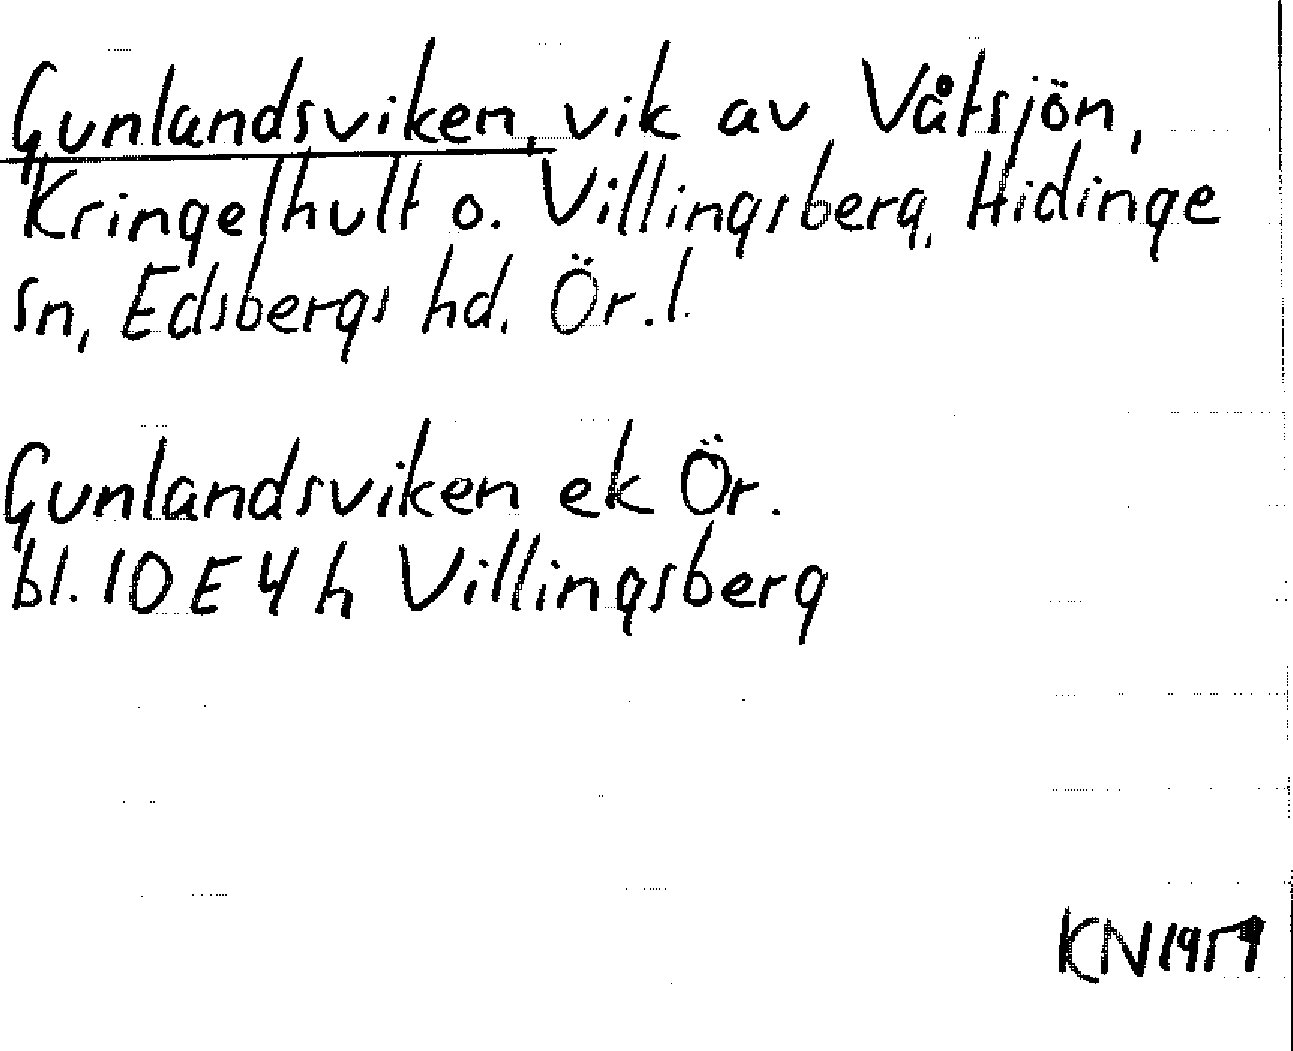 Gunlandsviken, vik av Våtsjön,
Kringelhult o. Villingsberg, Hidinge
sn, Edsbergs hd. Ör. l.
Gunlandsviken ek Ör.
bl. 10 E 4 h Villingsberg
KN 1959